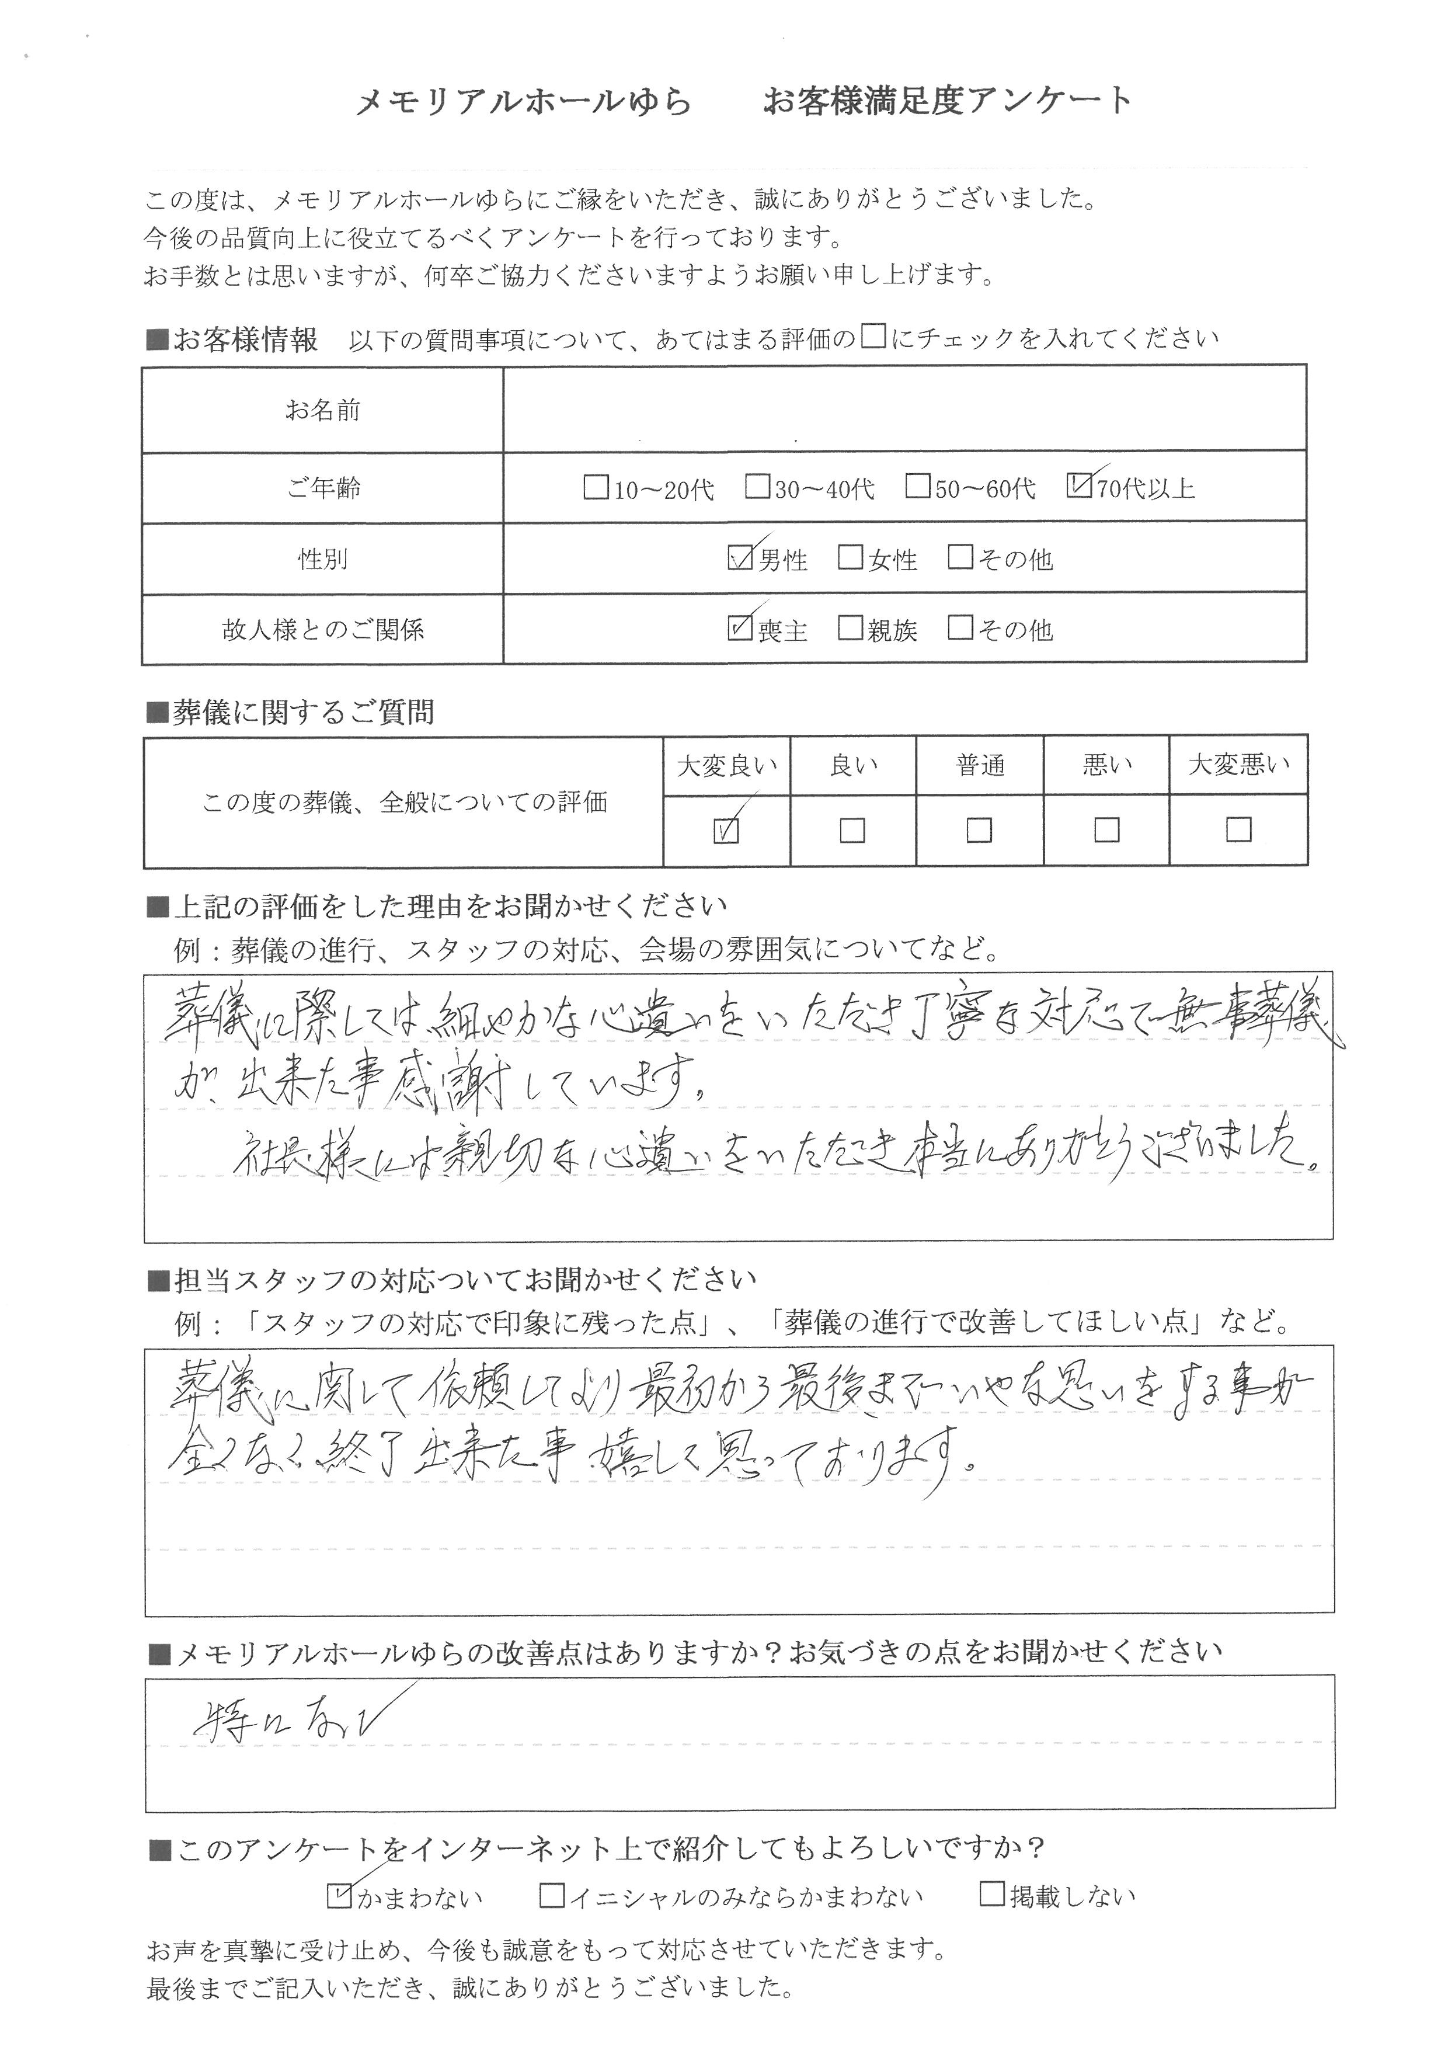 メモリアルホールゆら　　お客様満足度アンケート
この度は、メモリアルホールゆらにご縁をいただき、誠にありがとうございました。
今後の品質向上に役立てるべくアンケートを行っております。
お手数とは思いますが、何卒ご協力くださいますようお願い申し上げます。
■お客様情報　以下の質問事項について、あてはまる評価の□にチェックを入れてください
お名前
ご年齢　□10～20代　□30～40代　□50～60代　☑70代以上
性別　☑男性　□女性　□その他
故人様とのご関係　☑喪主　□親族　□その他
■葬儀に関するご質問
大変良い　良い　普通　悪い　大変悪い
この度の葬儀、全般についての評価　☑　□　□　□　□
■上記の評価をした理由をお聞かせください
例：葬儀の進行、スタッフの対応、会場の雰囲気についてなど。
葬儀に際しては細やかな心遣いをいただき丁寧な対応で無事葬儀
が出来た事感謝しています。
社長様には親切な心遣いをいただき本当にありがとうございました。
■担当スタッフの対応ついてお聞かせください
例：「スタッフの対応で印象に残った点」、「葬儀の進行で改善してほしい点」など。
葬儀に関して依頼してより最初から最後までいやな思いをする事が
全くなく終了出来た事嬉しく思っております。
■メモリアルホールゆらの改善点はありますか？お気づきの点をお聞かせください
特になし
■このアンケートをインターネット上で紹介してもよろしいですか？
☑かまわない　□イニシャルのみならかまわない　□掲載しない
お声を真摯に受け止め、今後も誠意をもって対応させていただきます。
最後までご記入いただき、誠にありがとうございました。